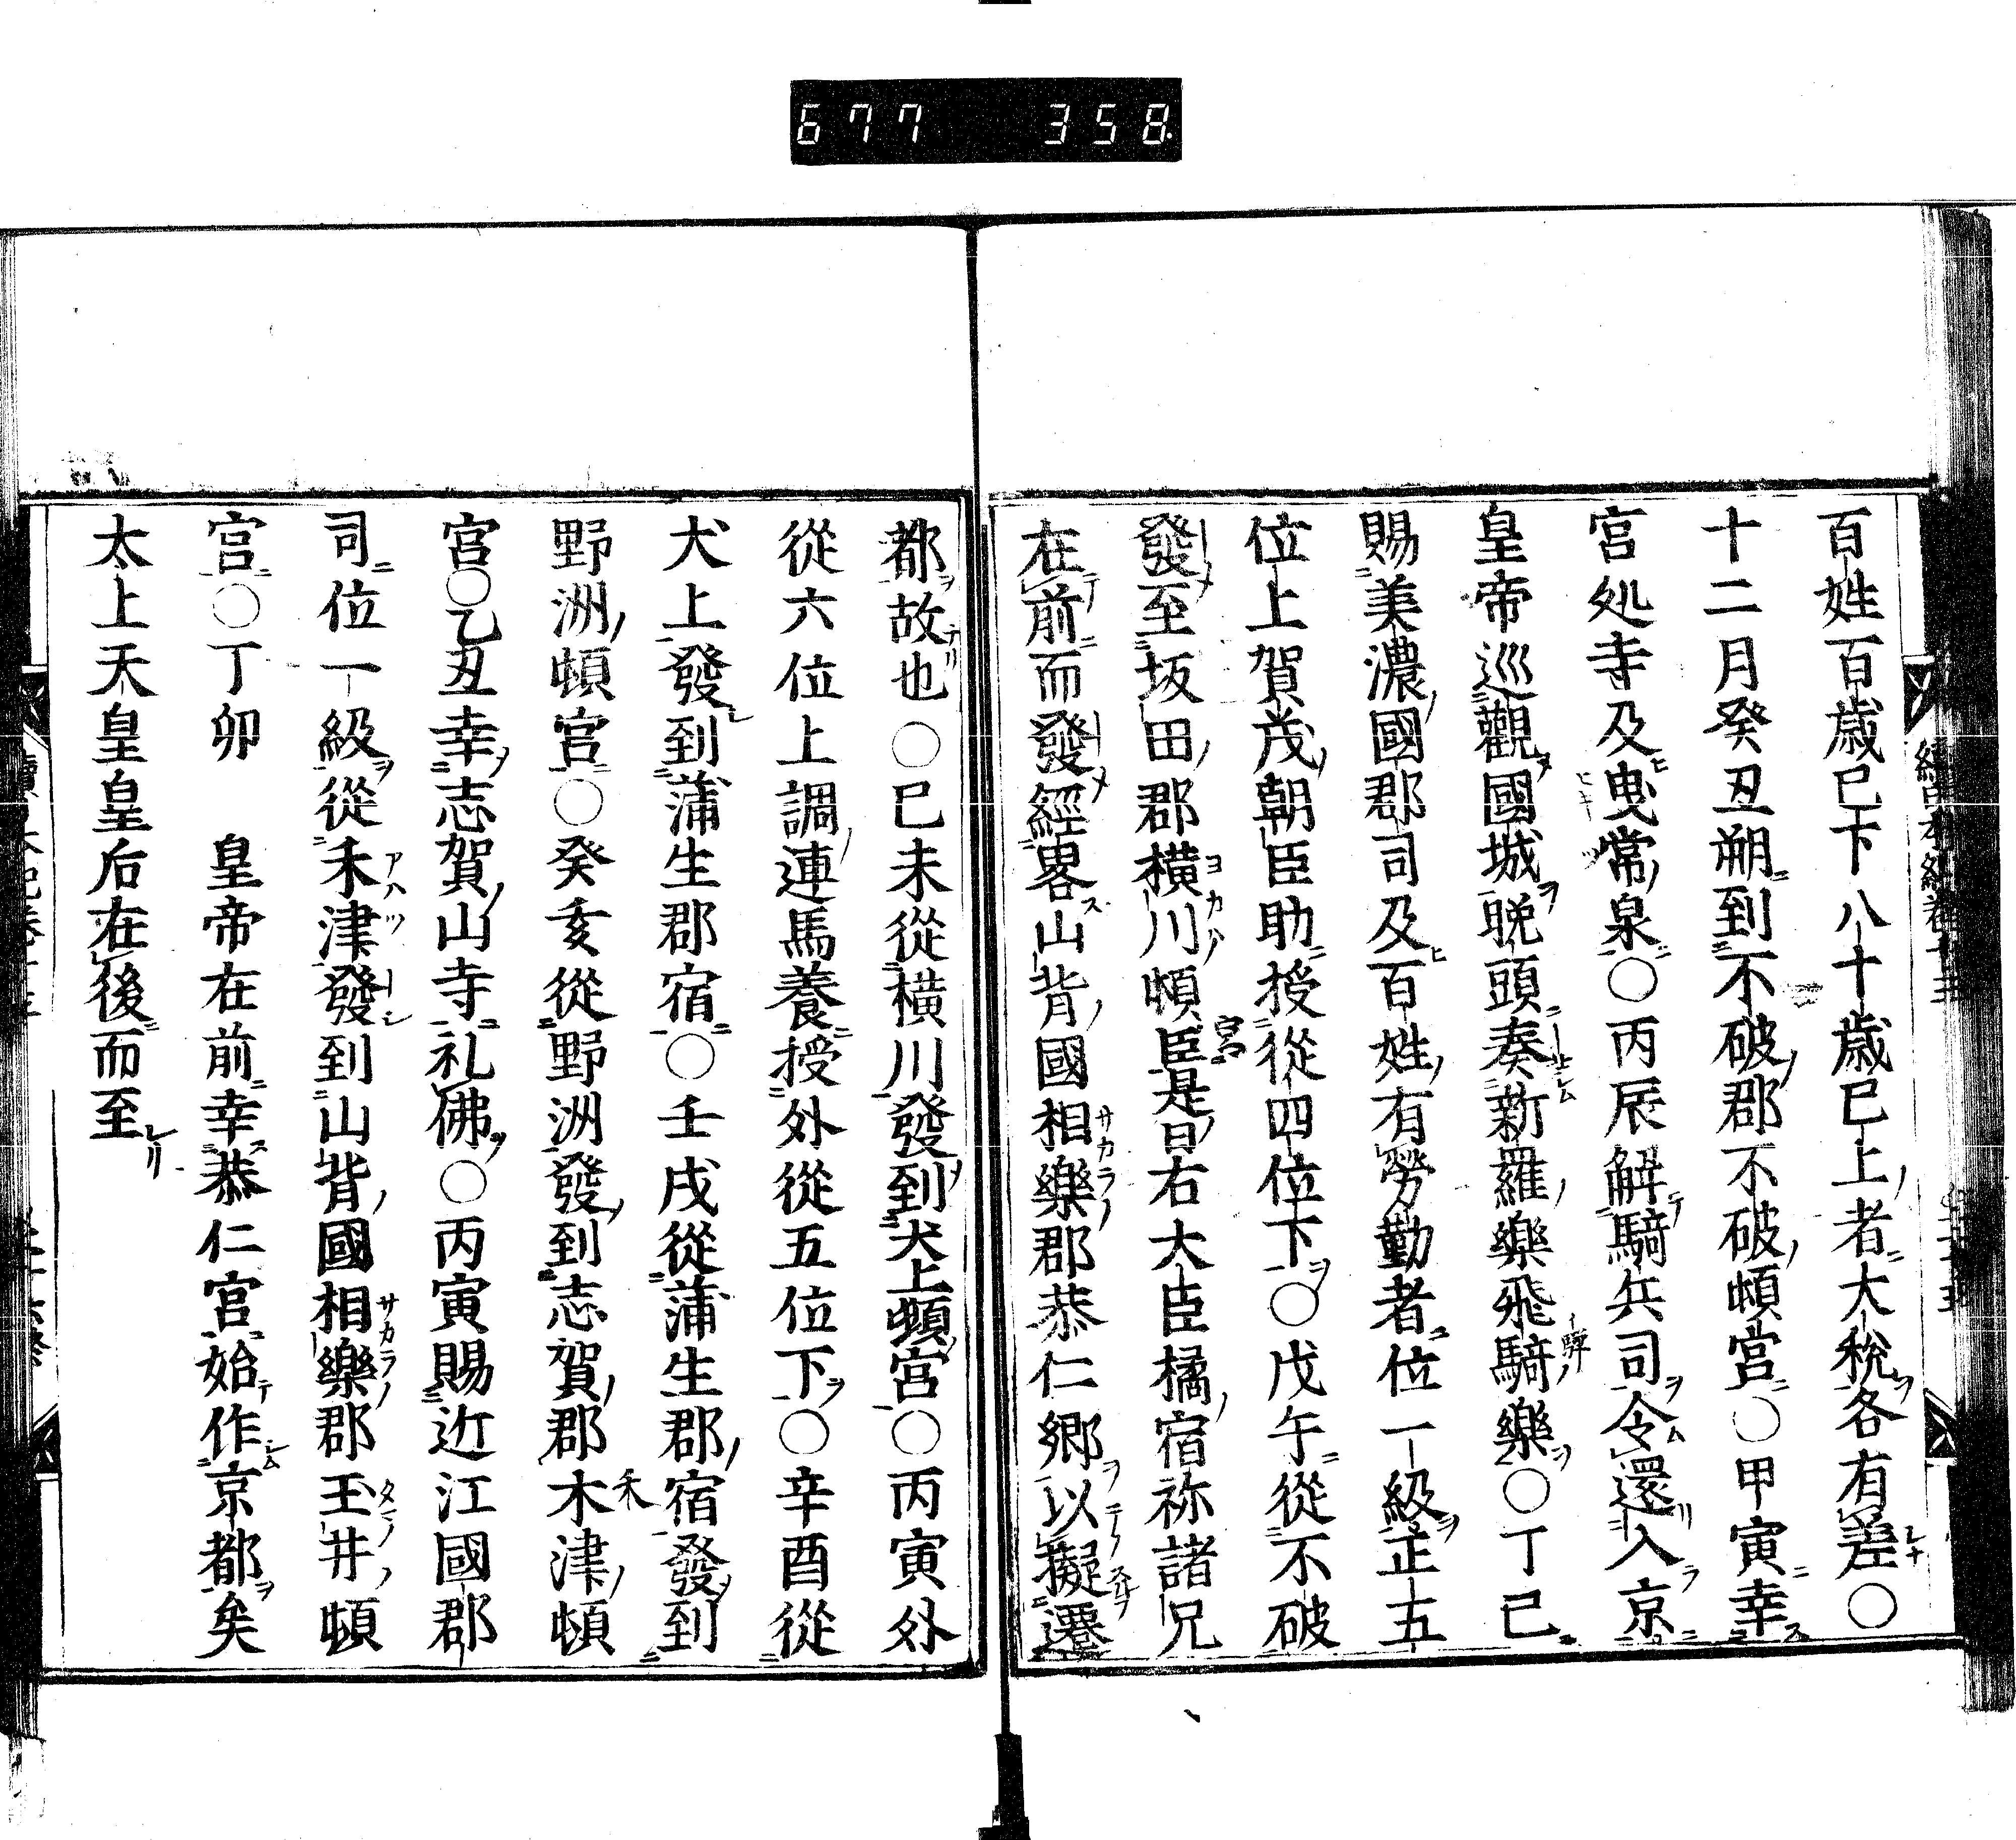 677 358
百姓百歳巳下八十歳巳上者大税各有差○
十二月癸丑朔到不破郡不破頓宮○甲寅幸
宮処寺及曳常泉○丙辰解騎兵司令還入京
皇帝巡觀國城晩頭奏新羅樂飛騎樂○丁巳
賜美濃國郡司及百姓有勞勤者位一級正五
位上賀茂朝臣助授從四位下○戊午從不破
發至坂田郡横川頓臣是日右大臣橘宿祢諸兄
在前而發經畧山背國相樂郡恭仁郷以擬遷
都故也○巳未從横川發到犬上頓宮○丙寅外
從六位上調連馬養授外從五位下○辛酉從
犬上發到蒲生郡宿○壬戌從蒲生郡宿發到
野洲頓宮○癸亥從野洲發到志賀郡木津頓
宮○乙丑幸志賀山寺礼佛○丙寅賜近江國郡
司位一級從禾津發到山背國相樂郡玉井頓
宮○丁卯　皇帝在前幸恭仁宮始作京都矣
太上天皇皇后在後而至